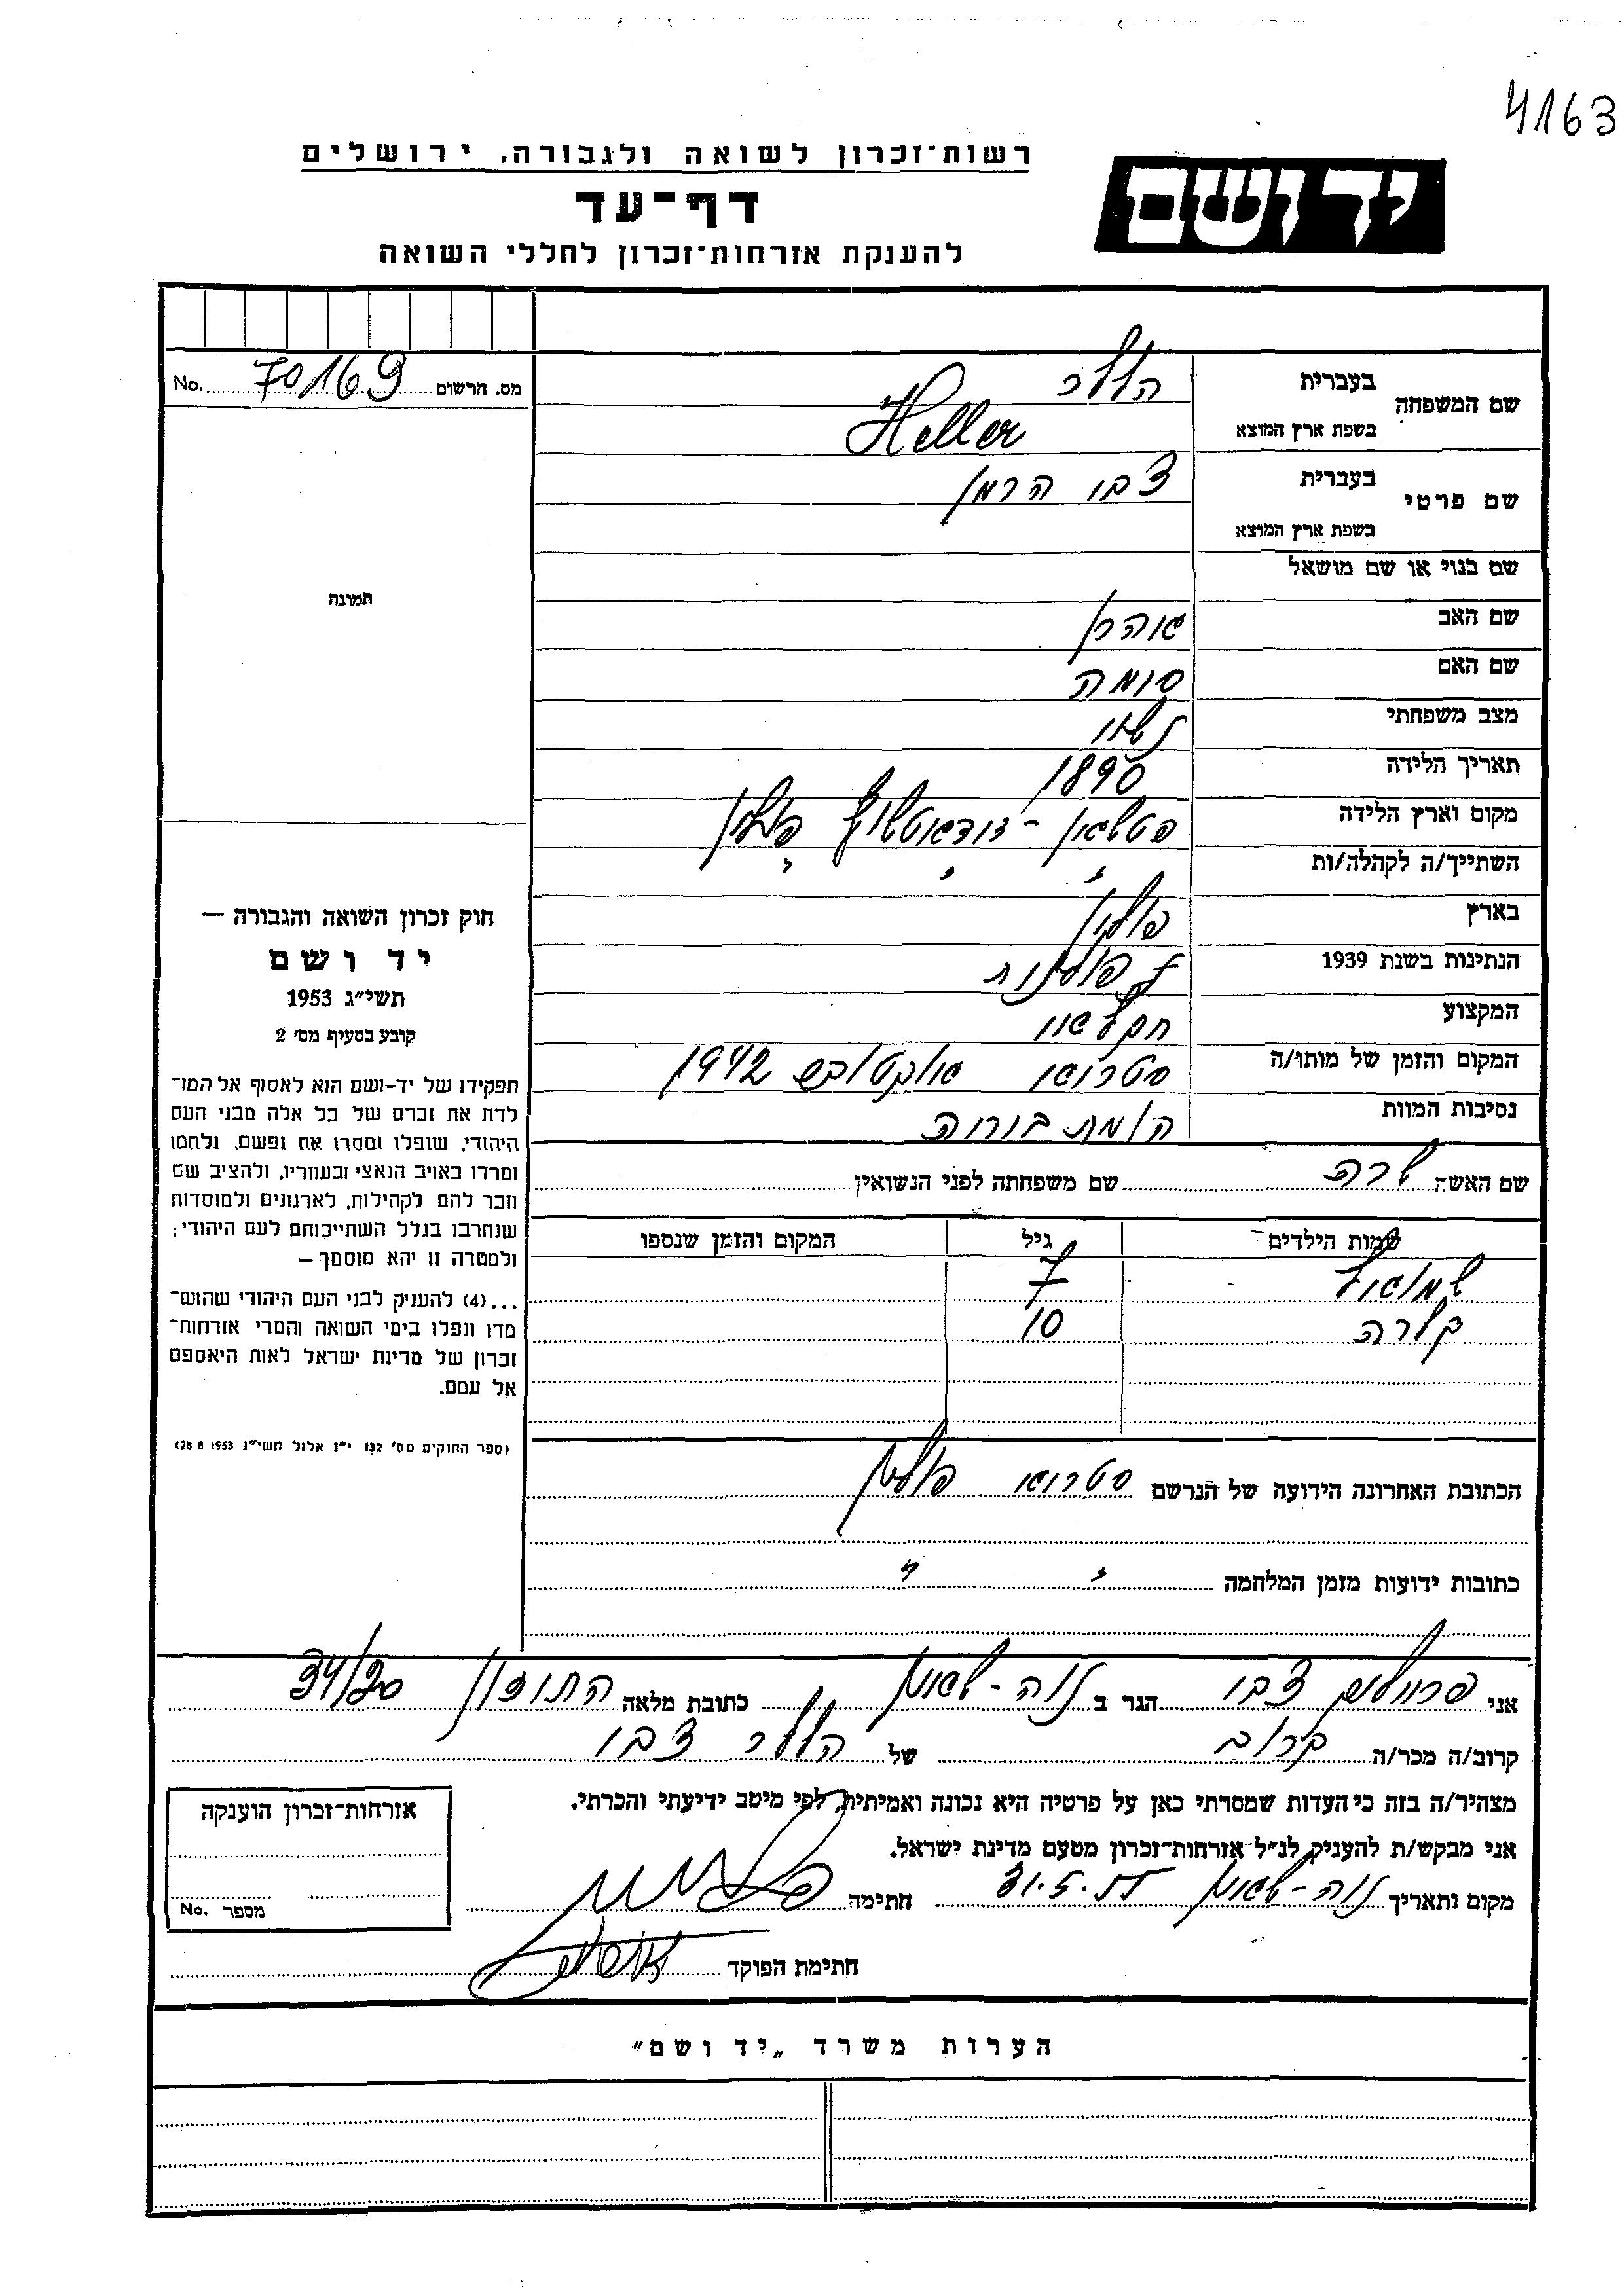 4163
רשות־זכרון לשואה ולגבורה, ירושלים
יד ושם
דף־עד
להענקת אזרחות־זכרון לחללי השואה
מס. הרשום 70169 No.
שם המשפחה
בעברית הללר
בשפת ארץ המוצא Heller
שם פרטי
בעברית צבי הרמן
בשפת ארץ המוצא
שם בנוי או שם מושאל
שם האב אהרן
שם האם סומה
מצב משפחתי נשוי
תאריך הלידה 1890
מקום וארץ הלידה פולין
השתייך/ה לקהלה/ות " " "
בארץ פולין
הנתינות בשנת 1939 פולנית
המקצוע חקלאי
המקום והזמן של מותו/ה סטרוי אוקטובר 1942
נסיבות המוות המתת בוריה
שם האשה שרה שם משפחתה לפני הנשואין
שמות הילדים גיל המקום והזמן שנספו
שמואל 7
קלרה 10
הכתובת האחרונה הידועה של הנרשם סטרוי פולין
כתובות ידועות מזמן המלחמה " "
תמונה
חוק זכרון השואה והגבורה —
יד ושם
תשי״ג 1953
קובע בסעיף מס׳ 2
תפקידו של יד-ושם הוא לאסוף אל המו־
לדת את זכרם של כל אלה מבני העם
היהודי, שנפלו ומסרו את נפשם, נלחמו
ומרדו באויב הנאצי ובעוזריו, ולהציב שם
וזכר להם לקהילות, לארגונים ולמוסדות
שנחרבו בגלל השתייכותם לעם היהודי;
ולמטרה זו יהא מוסמך —
...(4) להעניק לבני העם היהודי שהוש־
מדו ונפלו בימי השואה והמרי אזרחות־
זכרון של מדינת ישראל לאות היאספם
אל עמם.
(ספר החוקים מס׳ 132 י״ז אלול תשי״ג 28.8.1953)
אני צבי הגר ב נוה-שאנן כתובת מלאה התיכון 34/20
קרוב/ה מכר/ה קרוב של הללר צבי
מצהיר/ה בזה כי העדות שמסרתי כאן על פרטיה היא נכונה ואמיתית, לפי מיטב ידיעתי והכרתי.
אני מבקש/ת להעניק לנ״ל אזרחות־זכרון מטעם מדינת ישראל.
מקום ותאריך נוה-שאנן 31.5.55 חתימה
חתימת הפוקד
אזרחות־זכרון הוענקה
מספר No.
הערות משרד „יד ושם״